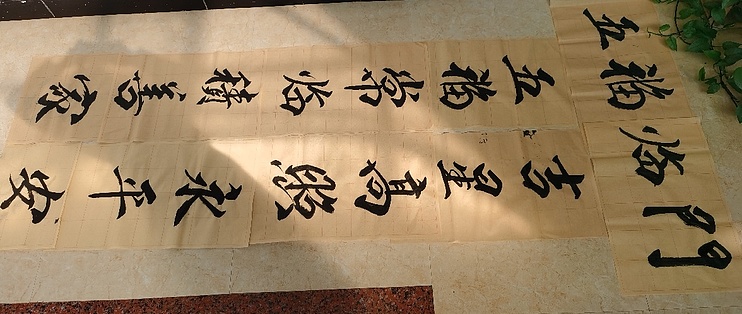 五福临門
五福常临積善家
吉星高照永平安